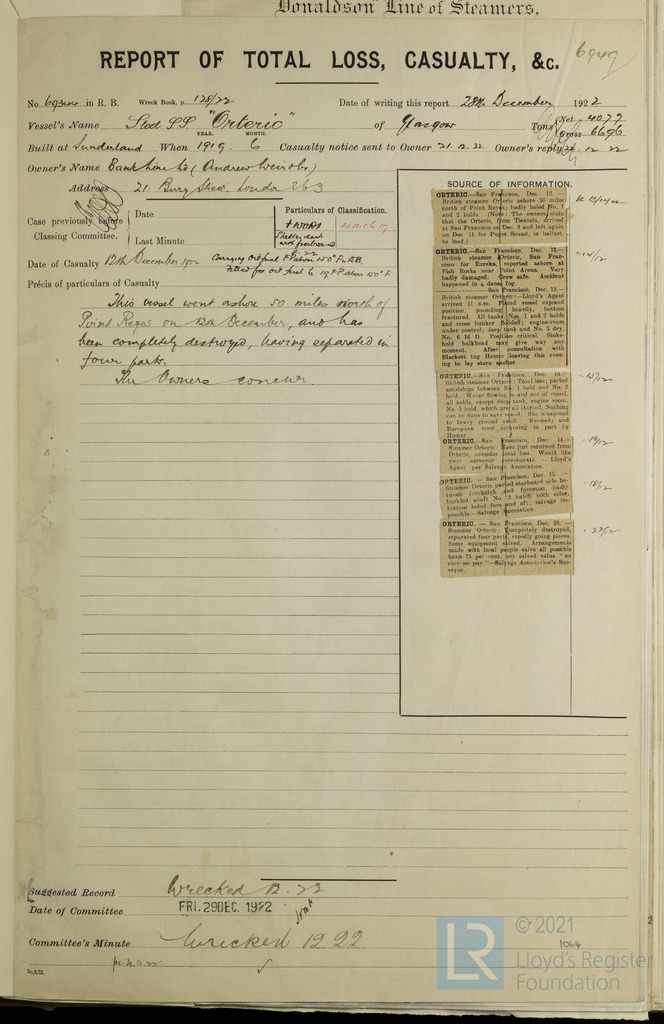 Donaldson Line of Steamers.
REPORT OF TOTAL LOSS, CASUALTY, &c. 6949
No. in R. B. Wreck Book, p. 128/22 Date of writing this report 28th December 1922
Vessel's Name Steel SS "Orteric" of Glasgow Tons Net 4077 Gross 6696
YEAR. MONTH.
Built at Sunderland When 1919. 6 Casualty notice sent to Owner 21.12.22 Owner's reply 22.12.22
Owner's Name Bank Line Ld (Andrew Weir & Co)
Address 21. Bury Street, London EC3
Case previously before Classing Committee.
Date
Last Minute
Particulars of Classification.
Shelter deck
with freeboard
Date of Casualty 12th December 1922
Précis of particulars of Casualty
This vessel went ashore 50 miles north of
Point Reyes on 12th December, and has
been completely destroyed, having separated in
four parts.
The Owners concur.
SOURCE OF INFORMATION.
ORTERIC.—San Francisco, Dec. 12.—
British steamer Orteric ashore 50 miles
north of Point Reyes; badly holed No. 1
and 2 holds. (Note: The owners state
that the Orteric, from Tientsin, arrived
at San Francisco on Dec. 9 and left again
on Dec. 11 for Puget Sound, in ballast,
to load.)
ORTERIC.—San Francisco, Dec. 12.—
British steamer Orteric, San Fran-
cisco for Eureka, reported ashore at
Fish Rocks near Point Arena. Very
badly damaged. Crew safe. Accident
happened in a dense fog.
San Francisco, Dec. 12.—
British steamer Orteric—Lloyd's Agent
arrived 11 a.m. Found vessel exposed
position, pounding heavily, bottom
fractured. All tanks Nos. 1 and 2 holds
and cross bunker flooded; engine-room
under control; deep tank and No. 5 dry,
No. 6 16 ft. Position critical. Stoke-
hold bulkhead may give way any
moment. After consultation with
Blackett tug Homer leaving this even-
ing to lay stern anchor.
ORTERIC.—San Francisco, Dec. 13.—
British steamer Orteric: Total loss; parted
amidships between No. 1 hold and No. 2
hold. Water flowing in and out of vessel,
all holds, except deep tank, engine room,
No. 5 hold, which are all started. Nothing
can be done to save vessel. She is exposed
to heavy ground swell. Kennedy and
European crew returning to port by
Homer.
ORTERIC.—San Francisco, Dec. 14.—
Steamer Orteric: Have just returned from
Orteric, consider total loss. Would like
your surveyor corroborate.—Lloyd's
Agent per Salvage Association.
ORTERIC.—San Francisco, Dec. 15.—
Steamer Orteric parted starboard side be-
tween forehatch and foremast, badly
buckled abaft No. 2 hatch both sides,
bottom holed fore and aft; salvage im-
possible.—Salvage Association.
ORTERIC.—San Francisco, Dec. 20.—
Steamer Orteric: Completely destroyed,
separated four parts, rapidly going pieces.
Some equipment salved. Arrangements
made with local people salve all possible
basis 75 per cent. net salved value "no
cure no pay."—Salvage Association's Sur-
veyor.
14/12
15/12
18/12
22/12
Suggested Record Wrecked 12.22
Date of Committee FRI. 29 DEC. 1922
Committee's Minute Wrecked 12.22
1064
LR
© 2021
Lloyd's Register
Foundation